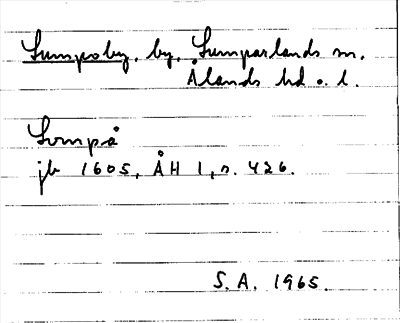 Sumpoby, by, Sumparlands sn.
Ålands hd o. l.
Sompå
jb 1605, ÅH 1, s. 426.
S. A. 1965.